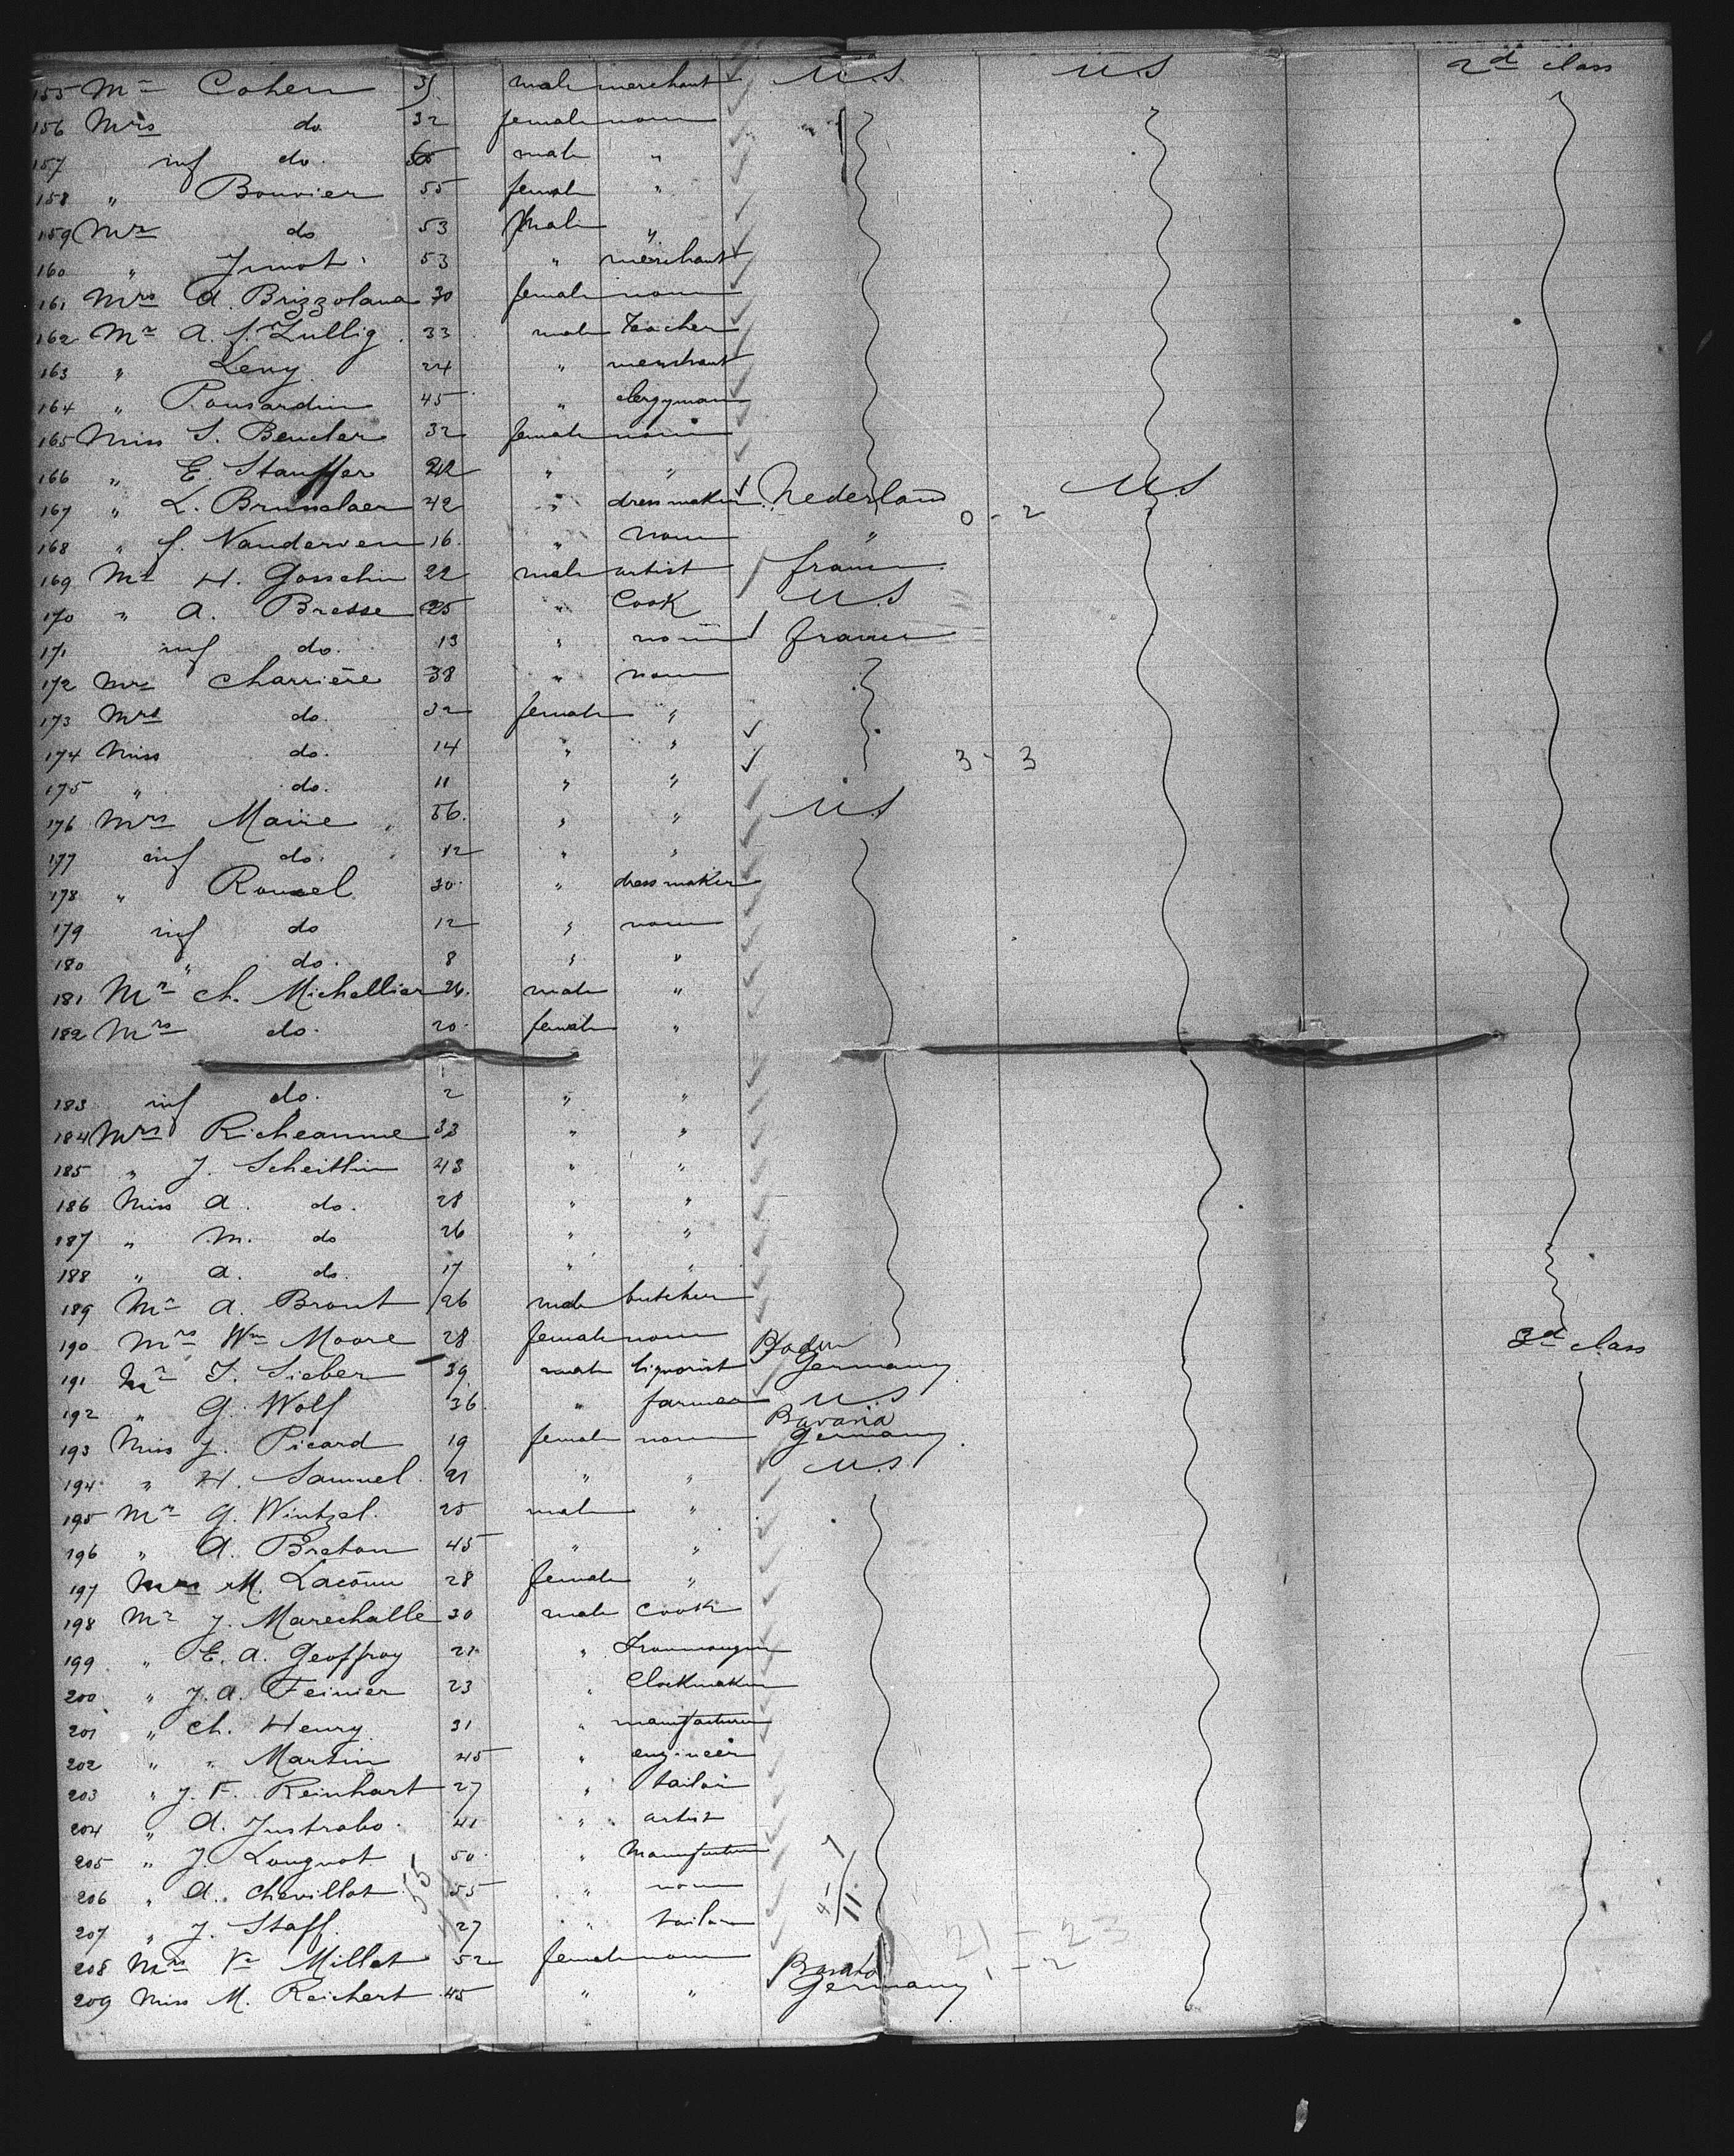 155 Mr Cohen 35 male merchant U.S. U.S 2d class
156 Mrs do 32 female none
157 inf do. male "
158 " Bouvier 55 female "
159 Mr do 53 male "
160 " 53 " merchant
161 Mrs A. Brizzolana 30 female none
162 Mr A. J. Zullig 33 male teacher
163 " Levy 24 " merchant
164 " Ponsardin 45 " clergyman
165 Miss S. Bencler 32 female none
166 " E. Stauffer " "
167 " L. Brusselaer 42 " dressmaker Nederland 0 - 2 U.S
168 " J. Vanderven 16. " none "
169 Mr H. Gosselin 22 male artist france
170 " A. Bresse 25 " Cook U.S
171 inf do. 13 " none france
172 Charrière 38 " none
173 Mrs do. 32 female "
174 Miss do. 14 " " 3 - 3
175 " do. 11 " "
176 Mrs Maire 56. " " U.S
177 inf do. 12 " "
178 " Roussel 30. " dressmaker
179 inf do 12 " none
180 " do. 8 " "
181 Mr Ch. Michellier 26. male "
182 Mrs do. 20. female "
183 inf do. 2 " "
184 Mrs Richeaume 33 " "
185 " J. Scheitlin 43 " "
186 Miss A. do. 28 " "
187 " M. do 26 " "
188 " A. do. 17 " "
189 Mr A. Brout 26 male butcher
190 Mrs Wm Moore 28 female none 3d class
191 Mr S. Sieber 39 male liquorist Baden Germany
192 " G. Wolf 36. " farmer U.S
193 Miss J. Picard 19 female none Bavaria Germany
194 " H. Samuel 21 " " U.S
195 Mr G. Wintzel. 25 male "
196 " A. Breton 45 " "
197 Mrs M. Lacöme 28 female "
198 Mr J. Marechalle 30 male Cook
199 " E. A. Geoffroy 21 " Ironmonger
200 " J. A. Feinier 23 " Clockmaker
201 " Ch. Henry 31 " manufacturer
202 " " Martin 45 " engineer
203 " J. F. Reinhart 27 " tailor
204 " A. Justrabo. 41 " artist
205 " J. Lougnot 50. " Manufacturer
206 " A. Chevillot 55 " none
207 " J. Staff. 27 " tailor 21 - 23
208 Mrs Ve Millet 52 female none 1 - 2
209 Miss M. Reichert 45 " " Germany